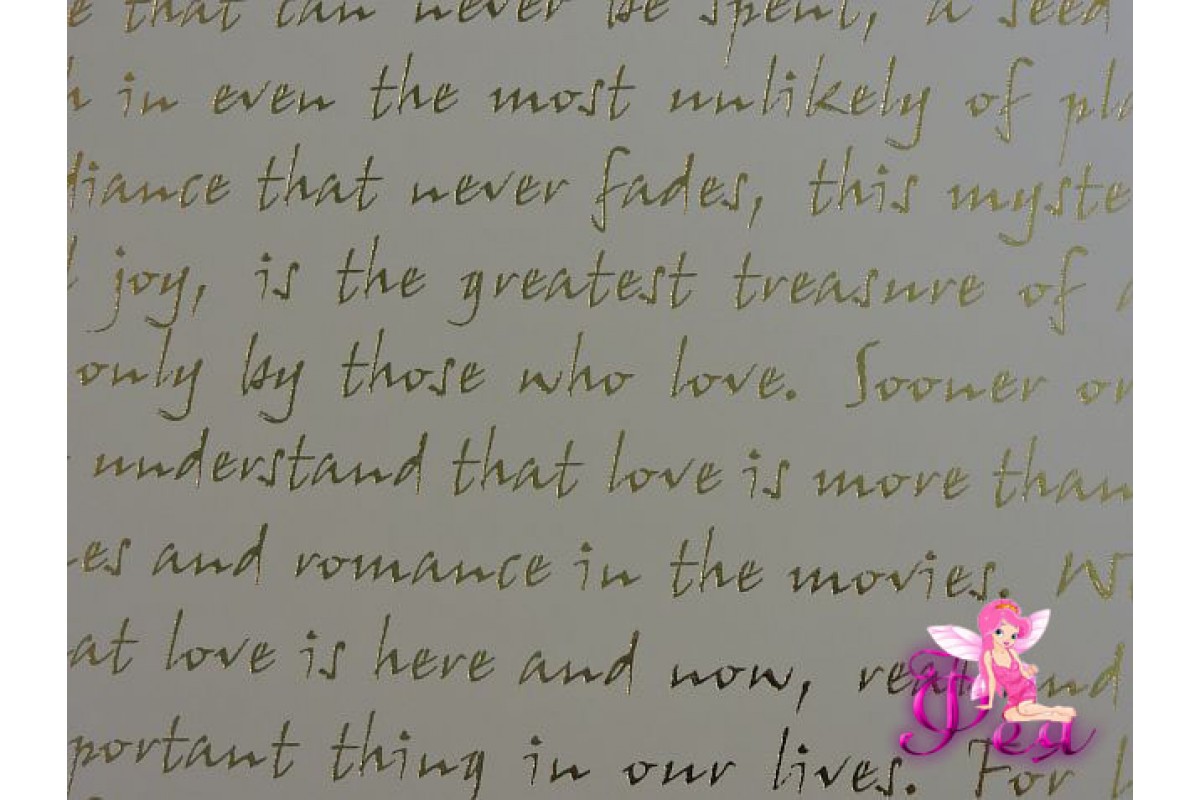 e that can never be spent, a seed
h in even the most unlikely of pla
diance that never fades, this myste
d joy, is the greatest treasure of
only by those who love. Sooner or
understand that love is more than
es and romance in the movies. We
at love is here and now, real and
portant thing in our lives. For l
Pea